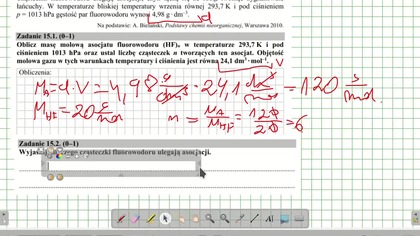 łańcuchy). W temperaturze bliskiej temperatury wrzenia równej 293,7 K i pod ciśnieniem
p = 1013 hPa gęstość par fluorowodoru wynosi 4,98 g·dm⁻³.
d
Na podstawie: A. Bielański, Podstawy chemii nieorganicznej, Warszawa 2010.
Zadanie 15.1. (0–1)
Oblicz masę molową asocjatu fluorowodoru (HF)ₙ w temperaturze 293,7 K i pod
ciśnieniem 1013 hPa oraz ustal liczbę cząsteczek n tworzących ten asocjat. Objętość
molowa gazu w tych warunkach temperatury i ciśnienia jest równa 24,1 dm³·mol⁻¹.
V
Obliczenia:
M_A = d·V = 4,98 g/dm³ · 24,1 dm³/mol = 120 g/mol
M_HF = 20 g/mol n = M_A/M_HF = 120/20 = 6
Zadanie 15.2. (0–1)
cząsteczki fluorowodoru ulegają asocjacji.